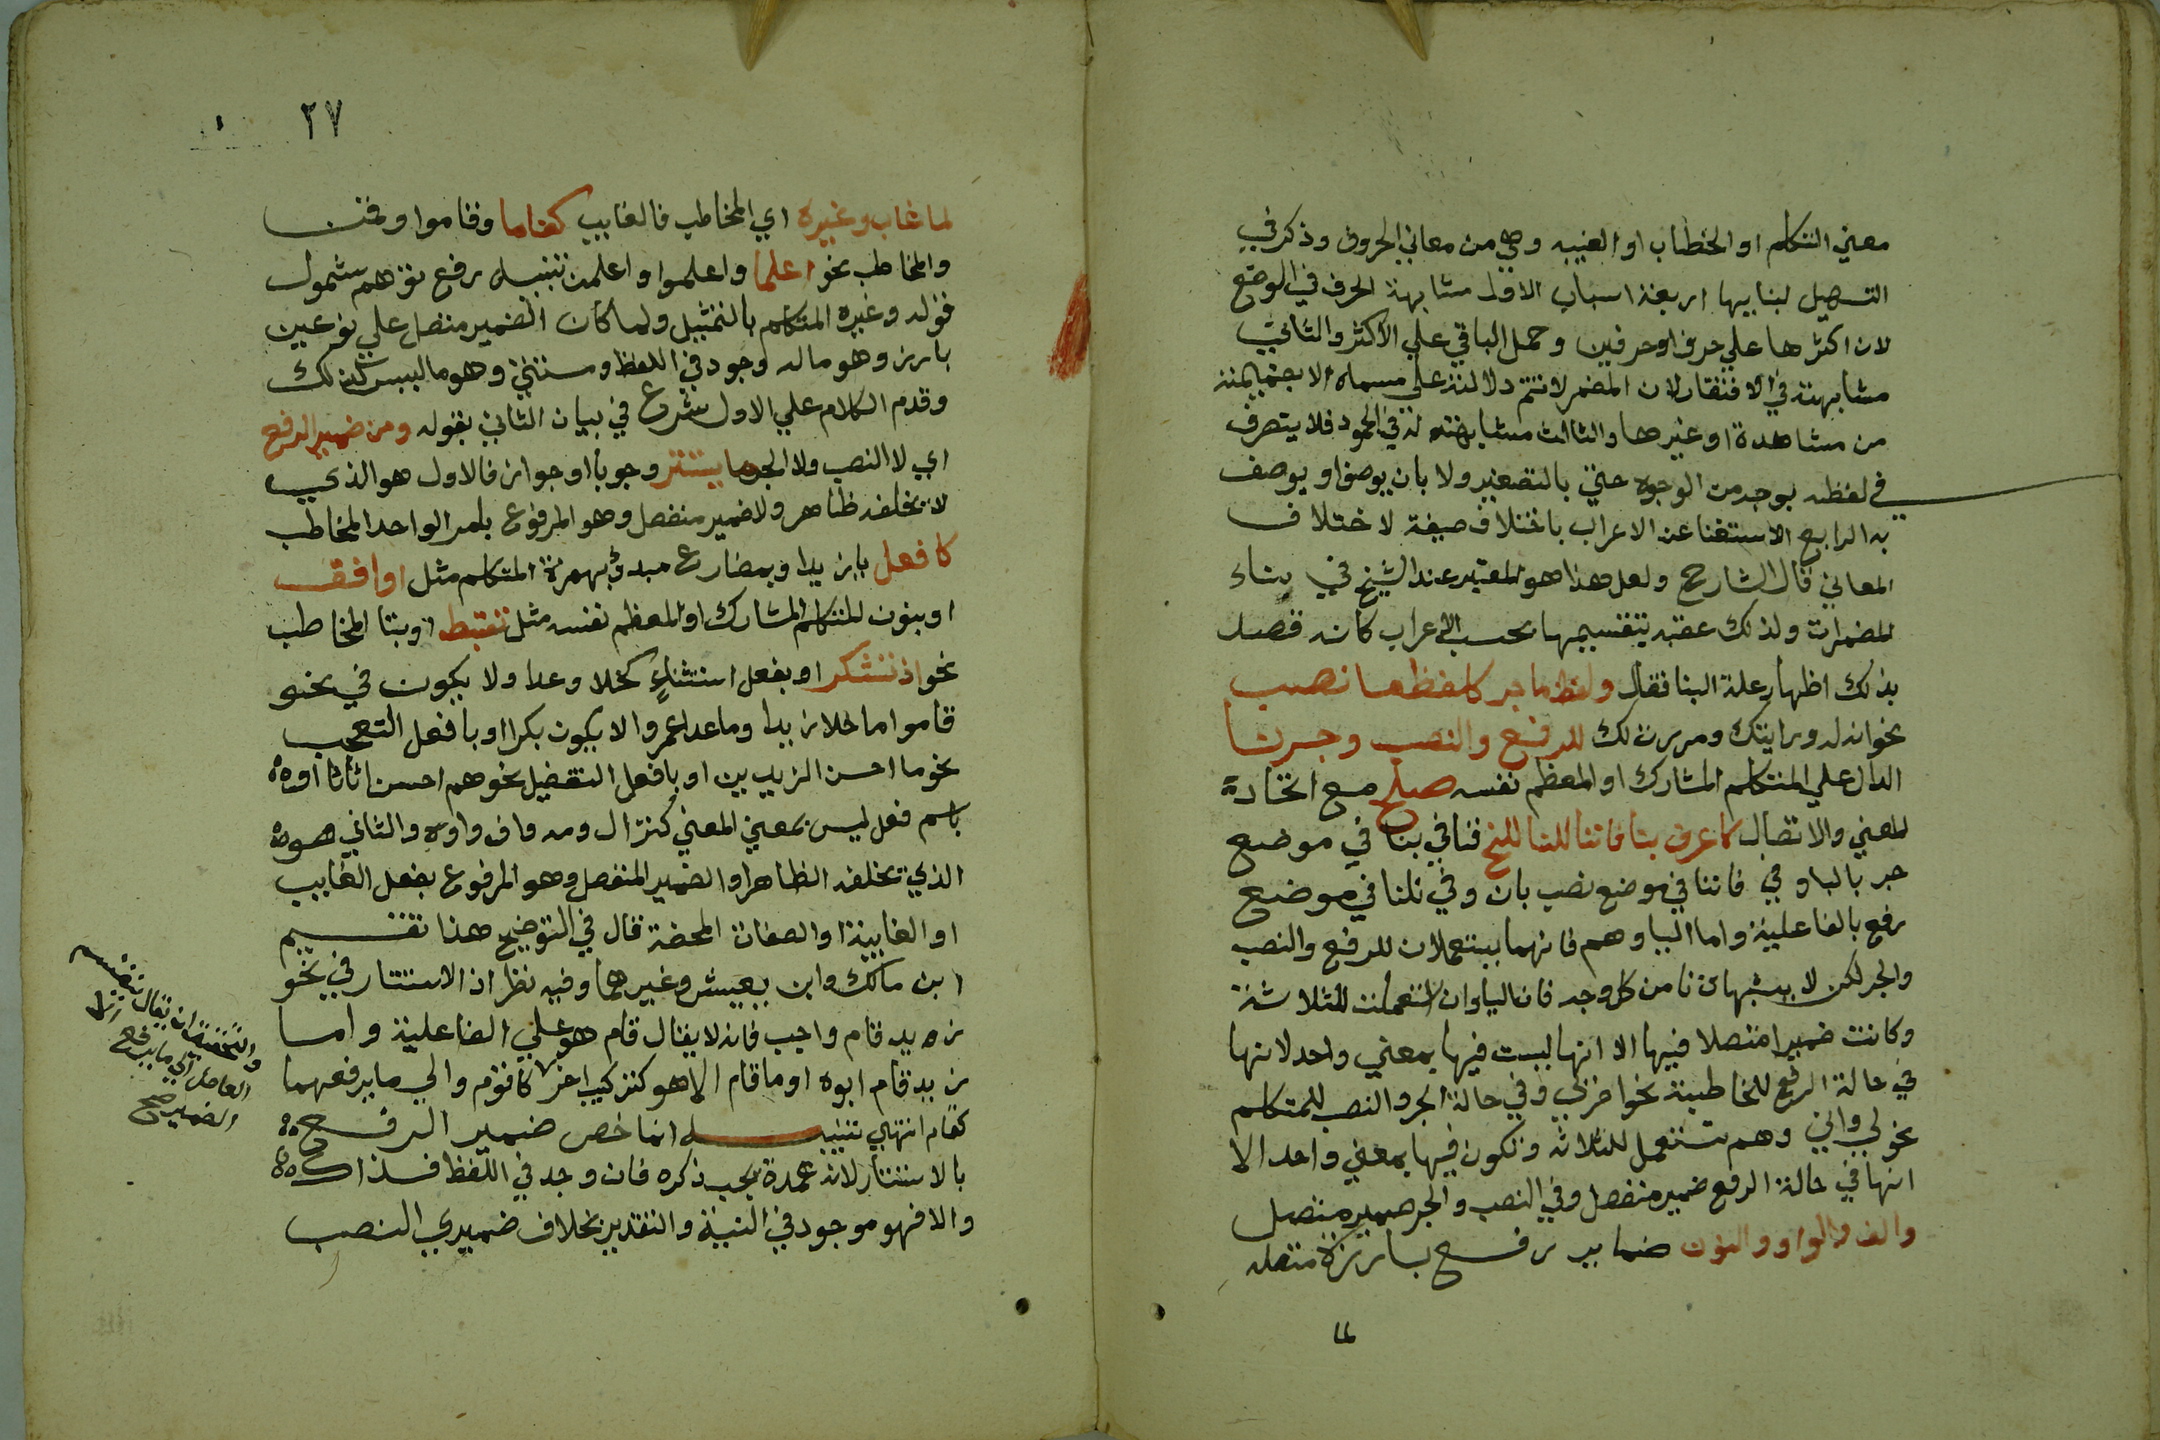 معني التكلم او الخطاب او الغيبه وهي من معاني الحروف وذكر في
التسهيل لبنايها اربعة اسباب الاول مشابهة الحرف في الوضع
لان اكثرها علي حرف او حرفين وحمل الباقي علي الاكثر والثاني
مشابهته في الافتقار لان المضمر لا تتم دلالته علي مسماه الا بضميمة
من مشاهدة او غيرها والثالث مشابهته له في الجمود فلا يتصرف
في لفظه بوجه من الوجوه حتي بالتصغير ولا بان يوصف او يوصف
به الرابع الاستغنا عن الاعراب باختلاف صيغه لاختلاف
المعاني قال الشارح ولعل هذا هو المعتبر عند الشيخ في بناء
المضمرات ولذلك عقبه بتقسيمها بحسب الاعراب كانه قصد
بذلك اظهار علة البنا فقال ولفظ ما جر كلفظ ما نصب
نحو انه له ورايتك ومررت لك للرفع والنصب وجر نا
الدال علي المتكلم المشارك او المعظم نفسه صلح مع اتحاد
المعني والاتصال كاعرف بنا فاننا نلنا المنح فنا في بنا في موضع
جر بالبا وفي فاننا في موضع نصب بان وفي نلنا في موضع
رفع بالفاعلية واما اليا وهم فانهما يستعملان للرفع والنصب
والجر لكن لا يشبهان نا من كل وجه فان اليا وان استعملت للثلاثة
وكانت ضميرا متصلا فيها الا انها ليست فيها بمعني واحد لانها
في حالة الرفع للمخاطبة نحو اضربي وفي حالة الجر والنصب للمتكلم
نحو لي واني وهم تستعمل للثلاثه وتكون فيها بمعني واحد الا
انها في حالة الرفع ضمير منفصل وفي النصب والجر ضمير متصل
والف والواو والنون ضماير رفع بارزة متصله
لما
٢٧
لما غاب وغيره اي المخاطب فالغايب كقاما وقاموا وقمن
والمخاطب نحو اعلما واعلموا واعلمن تنبيه رفع توهم شمول
قوله وغيره المتكلم بالتمثيل ولما كان الضمير متصل علي نوعين
بارز وهو ما له وجود في اللفظ ومستتر وهو ما ليس كذلك
وقدم الكلام علي الاول شرع في بيان الثاني بقوله ومن ضمير الرفع
اي لا النصب ولا الجر ما يستتر وجوبا او جوازا فالاول هو الذي
لا يخلفه ظاهر ولا ضمير منفصل وهو المرفوع بامر الواحد المخاطب
كافعل يا زيد او بمضارع مبدؤ بهمزة المتكلم مثل اوافق
او بنون المتكلم المشارك او المعظم نفسه مثل نغتبط او بتا المخاطب
نحو اذ تشكر او بفعل استثناء كخلا وعدا ولا يكون في نحو
قاموا ما خلا زيدا وما عدا عمرو الا يكون بكرا او بافعل التعجب
نحو ما احسن الزيدين او بافعل التفضيل نحو هم احسن اثاثا او
باسم فعل ليس بمعني المضي كنزال ومه واف واوه والثاني هو
الذي يخلفه الظاهر او الضمير المنفصل وهو المرفوع بفعل الغايب
او الغايبة او الصفات المحضة قال في التوضيح هذا تقسيم
ابن مالك وابن يعيش وغيرهما وفيه نظر اذ الاستتار في نحو
زيد قام واجب فانه لا يقال قام هو علي الفاعلية واما
زيد قام ابوه او ما قام الا هو فتركيب اخر كاقوم والي ما يرفعهما
كقام انتهي تنبيه انما خص ضمير الرفع
بالاستتار لانه عمدة يجب ذكره فان وجد في اللفظ فذاك
والا فهو موجود في النية والتقدير بخلاف ضميري النصب
والتحقيق ان يقال ينقسم
العامل الي ما يرفع
والضمير صح